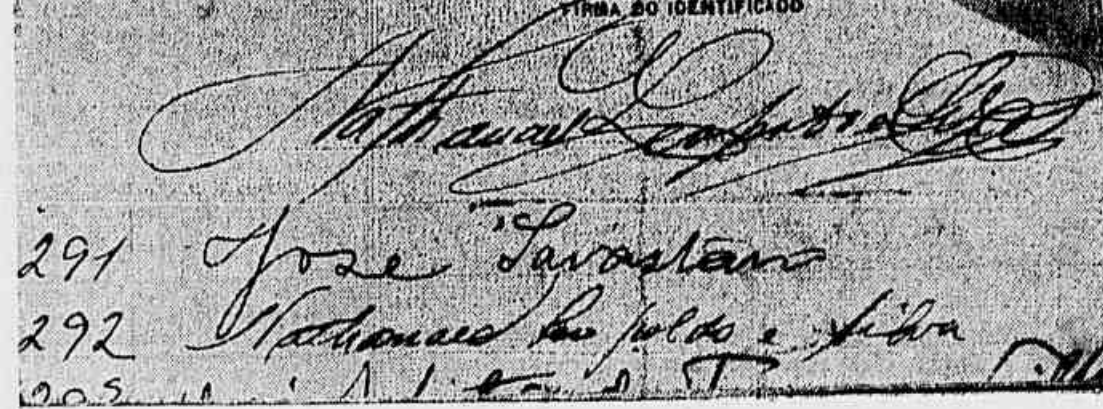 FIRMA DO IDENTIFICADO
Nathanael Leopoldo e Silva
291 José Savastano
292 Nathanael Leopoldo e Silva